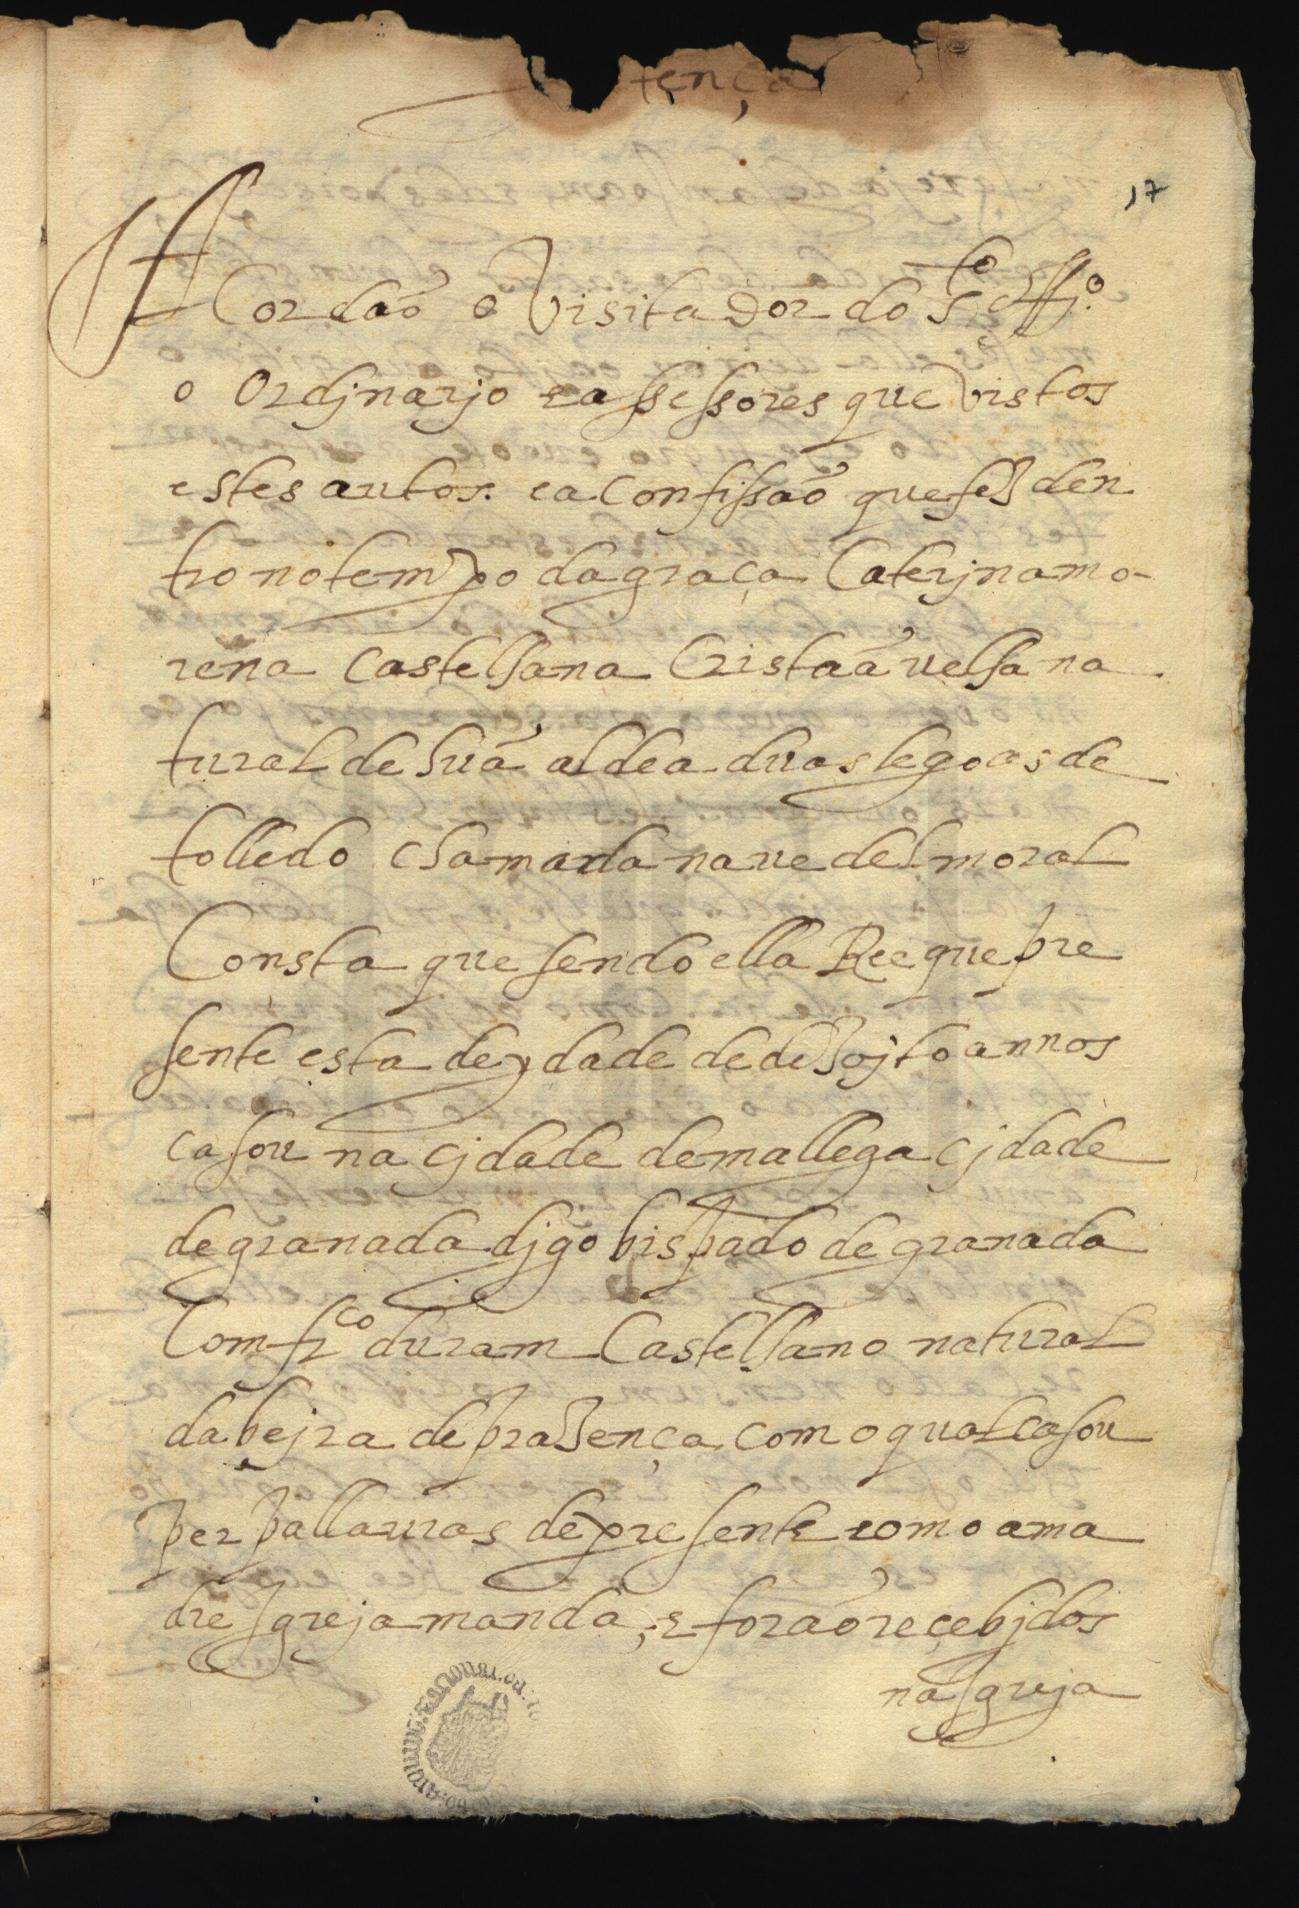 tença
17
Acordaõ o Visitador do S.to Off.o
o Ordjnarjo e assessores que vistos
estes autos. e a Confissaõ que fes den
tro no tempo da graça Caterjna mo-
rena Castelhana Cristaã velha na
tural de huã aldea duas legoas de
tolledo chamada naue del moral
Consta que sendo ella Ree que pre
sente esta de ydade de desojto annos
casou na cjdade de mallega cjdade
de granada djgo bispado de granada
Com fr.co duram Castelhano natural
da bejra de prazença com o qual casou
per pallauras de presente como a ma
dre Igreja manda, e foraõ recebjdos
na Igreja